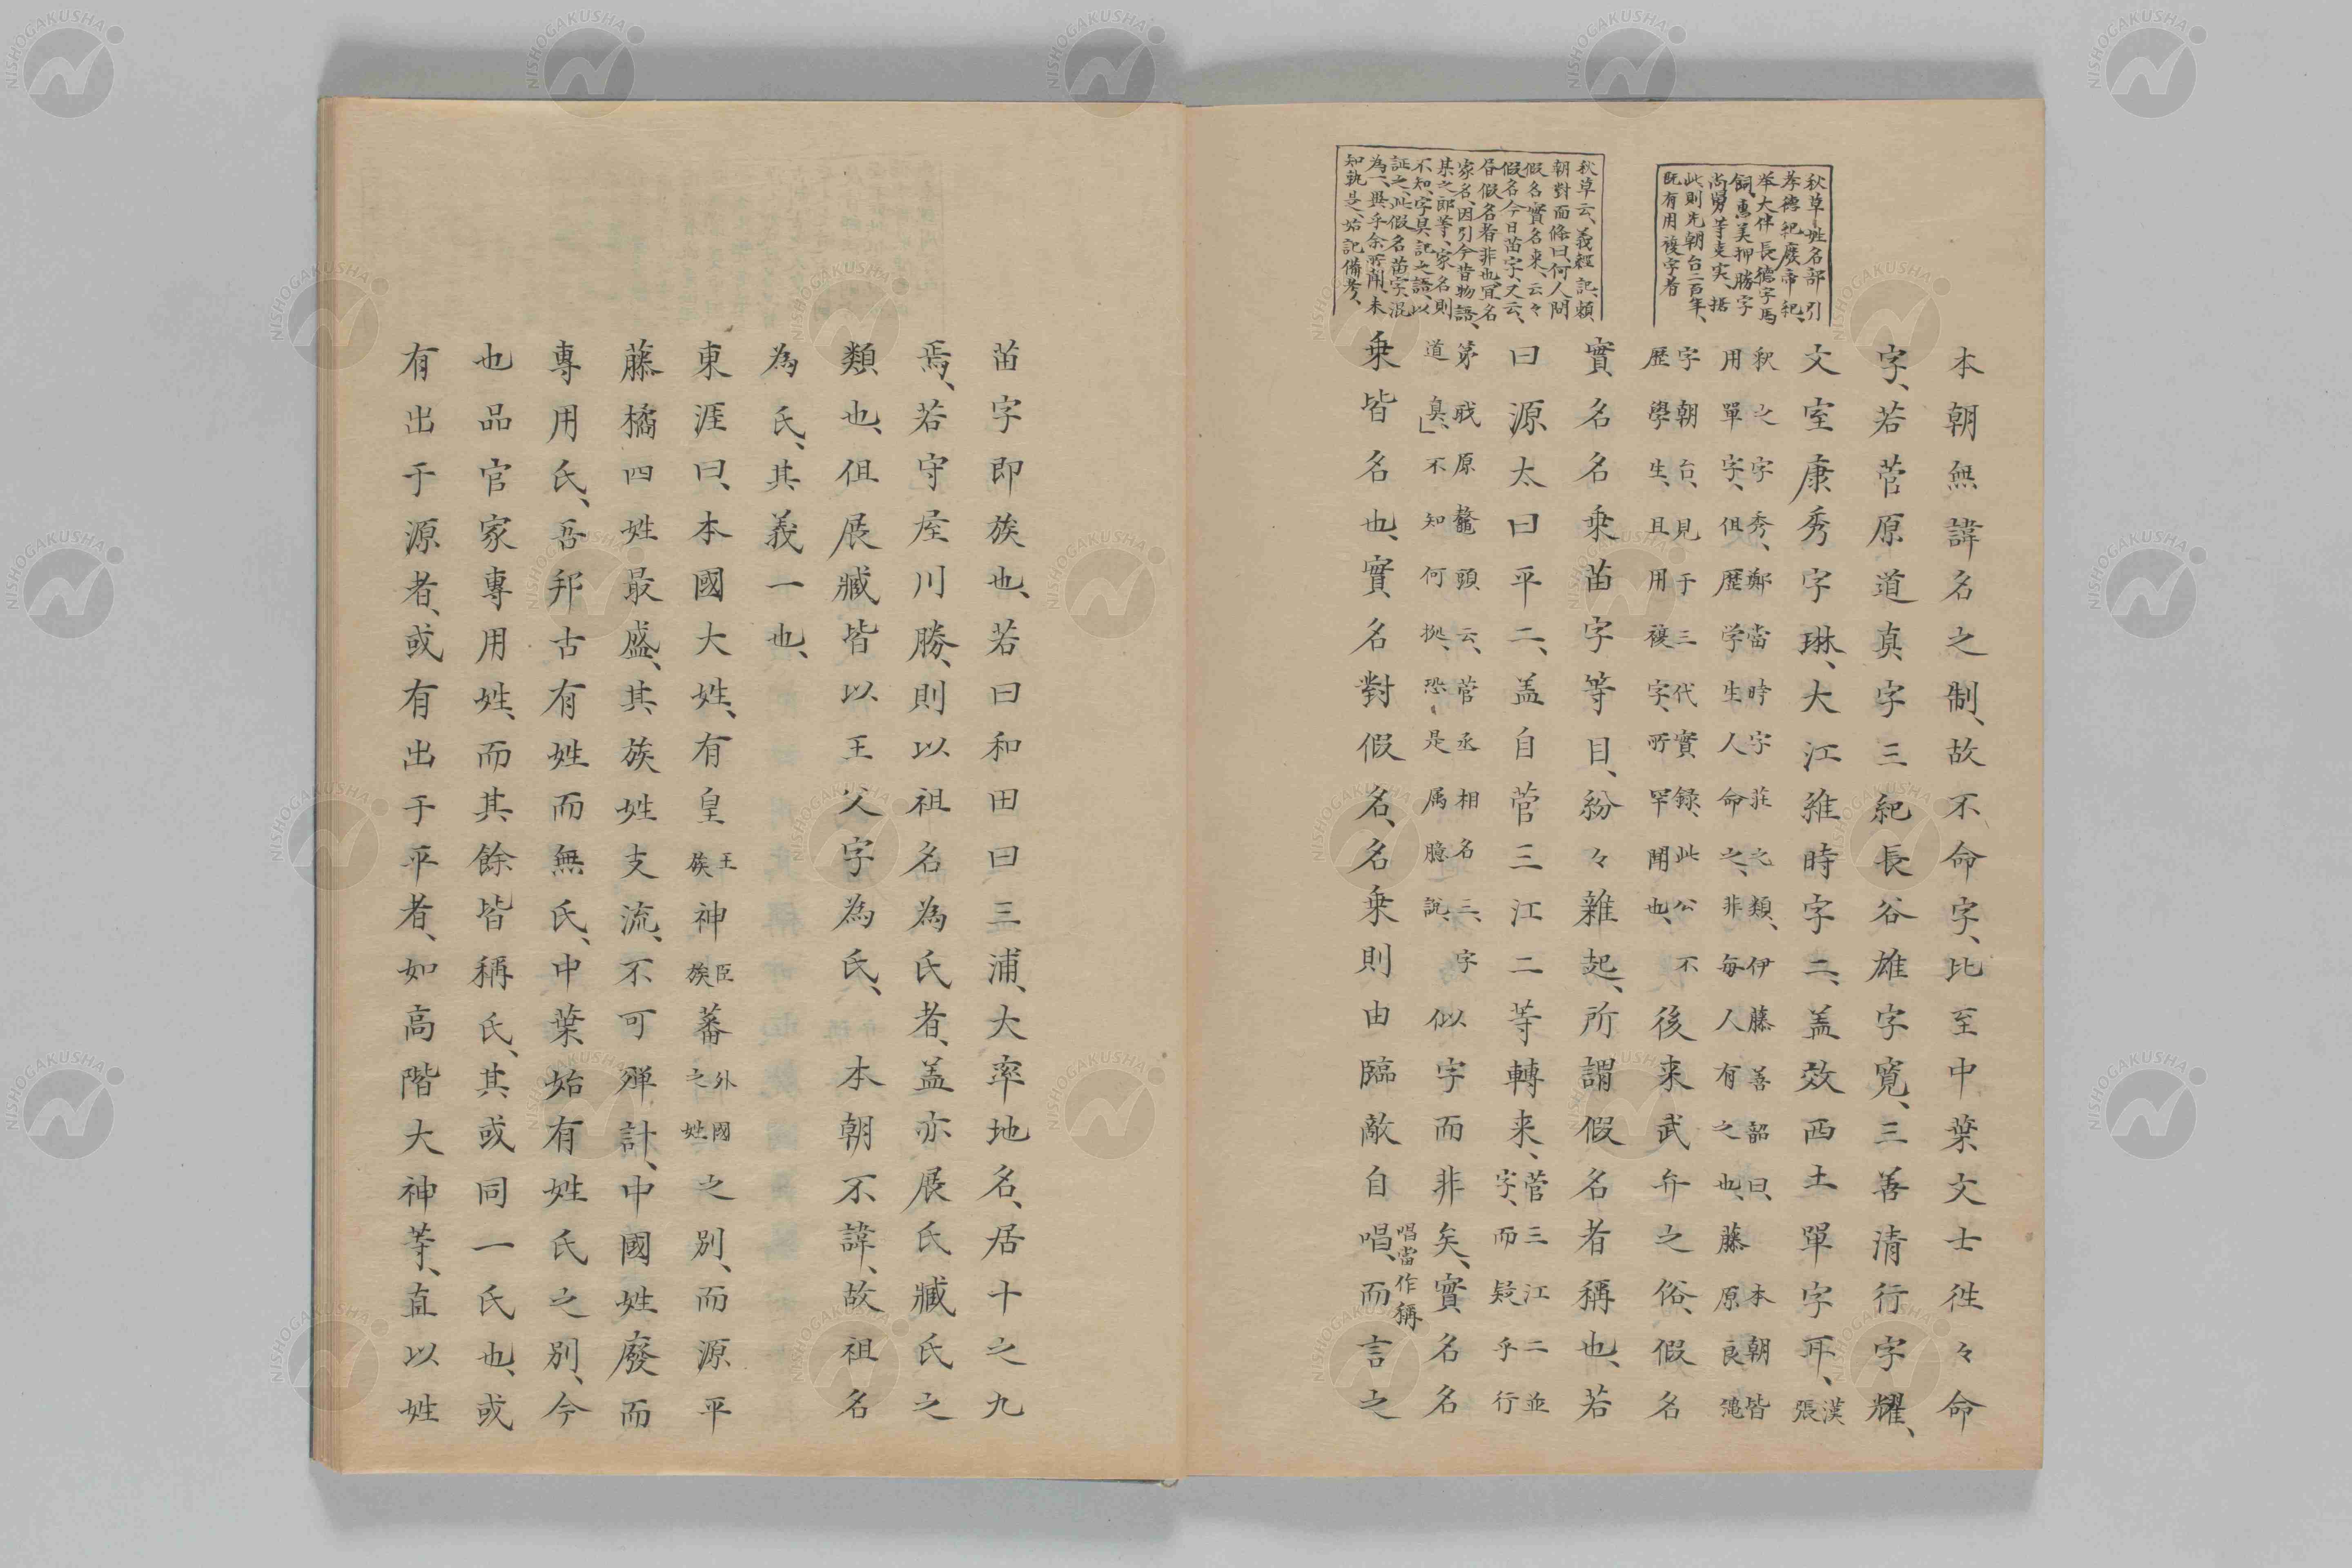 秋草姓名部引
孝德紀廢帝紀、
挙大伴長德字馬
飼、惠美押勝字
尚舅等吏実、据
此則先朝台二百年、
既有用複字者
秋草云、義經記、類
朝對面條曰、何人問
假名實名来、云々
假名今日苗字、又云、
各假名者非也、宜名
家名、因引今昔物語、
某之郎等、家名則
不知、字具記之語、以
証之、此假名苗字、混
為一、異乎余所聞、未
知孰是、姑記備考、
本朝無諱名之制、故不命字、比至中葉文士徃々命
字、若菅原道真字三紀長谷雄字寛、三善清行字耀、
文室康秀字琳、大江維時字二、盖效西土單字耳、漢張
釈之字秀、鄭當時字荘之類、伊藤善韶曰、本朝皆
用單字、但歴学生人命之、非毎人有之也、藤原良
字朝台、見于三代實録、此公不
歴學生、且用複字、所罕聞也、後来武弁之俗、假名
實名名乗苗字等目、紛々雜起、所謂假名者稱也、若
曰源太曰平二、盖自菅三江二等轉来、菅三江二並字、而疑乎行
第、戝原鼇頭云、菅丞相名三、字
道臭、」不知何拠、恐是属臆說、似字而非矣、實名名
乗皆名也、實名對假名、名乗則由臨敵自唱、唱當作稱而言之
苗字即族也、若曰和田曰三浦、大率地名、居十之九
焉、若守屋川勝、則以祖名為氏者、盖亦展氏臧氏之
類也、但展臧皆以王父字為氏、本朝不諱、故祖名
為氏、其義一也、
東涯曰、本國大姓、有皇王族神臣族蕃外國之姓之別、而源平
藤橘四姓最盛、其族姓支流、不可殫計、中國姓廢而
專用氏、吾邦古有姓而無氏、中葉始有姓氏之別、今
也品官家專用姓、而其餘皆稱氏、其或同一氏也、或
有出于源者、或有出于平者、如高階大神等、直以姓
NISHOGAKUSHA